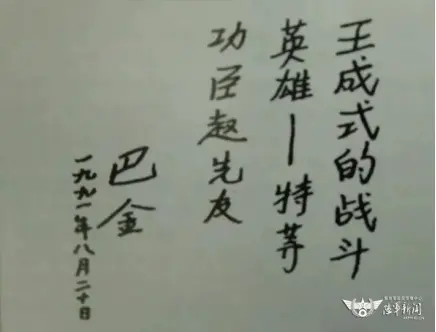 王成式的战斗
英雄—特等
功臣赵先友
巴金
一九九一年八月二十日
陆军新闻